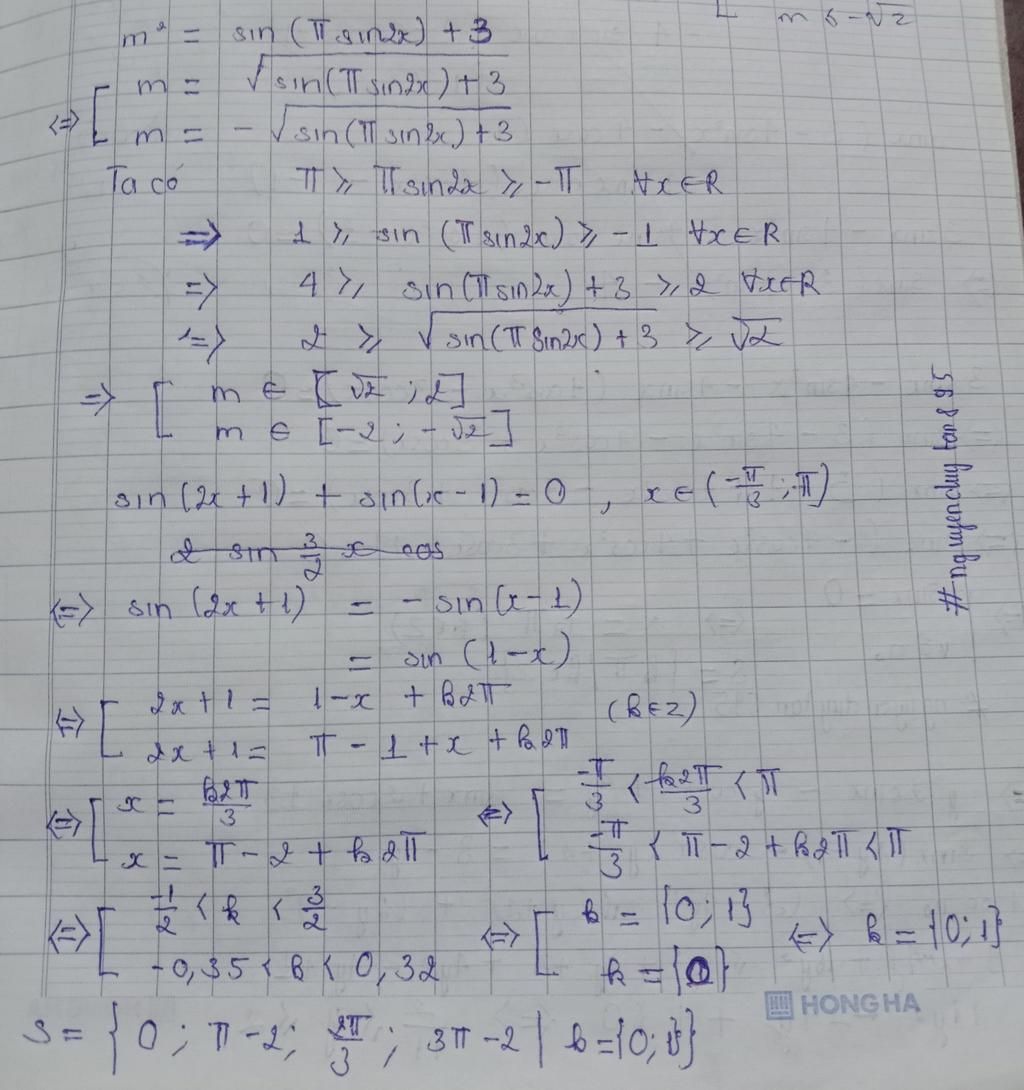 m ≤ -√2
m² = sin (π sin2x) + 3
<=> [ m = √(sin(π sin2x) + 3)
m = - √(sin(π sin2x) + 3)
Ta có π ≥ π sin2x ≥ -π ∀x∈R
=> 1 ≥ sin (π sin2x) ≥ -1 ∀x∈R
=> 4 ≥ sin(π sin2x) + 3 ≥ 2 ∀x∈R
=> 2 ≥ √(sin(π sin2x) + 3) ≥ √2
=> [ m ∈ [√2 ; 2]
m ∈ [-2 ; -√2]
sin(2x+1) + sin(x-1) = 0 , x ∈ (-π/3 ; π)
2 sin 3/2 x cos
<=> sin (2x+1) = - sin(x-1)
= sin (1-x)
<=> [ 2x+1 = 1-x + k2π (k∈Z)
2x+1 = π - 1 + x + k2π
<=> [ x = k2π/3 <=> [ -π/3 < k2π/3 < π
x = π-2 + k2π -π/3 < π-2 + k2π < π
<=> [ -1/2 < k < 3/2 <=> [ k = {0; 1} <=> k = {0; 1}
-0,35 < k < 0,32 k = {0}
S = { 0 ; π-2 ; 2π/3 ; 3π-2 | k = {0; 1}}
#nguyenduytan895
HONG HA